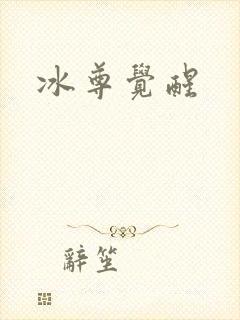 冰尊覺醒
辭笙